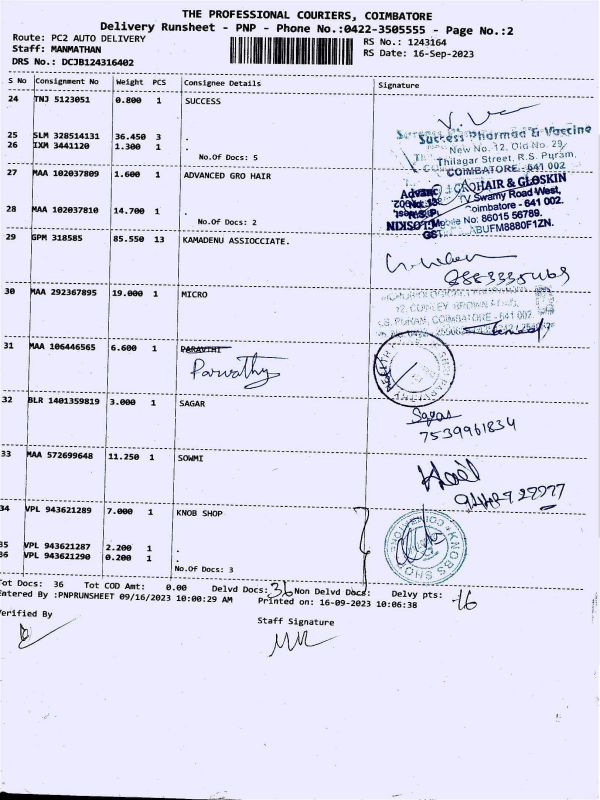 THE PROFESSIONAL COURIERS, COIMBATORE
Delivery Runsheet - PNP - Phone No.:0422-3505555 - Page No.:2
Route: PC2 AUTO DELIVERY
RS No.: 1243164
Staff: MANMATHAN
RS Date: 16-Sep-2023
DRS No.: DCJB124316402
S No Consignment No Weight PCS Consignee Details Signature
24 TNJ 5123051 0.800 1 SUCCESS
Success Pharmaa & Vaccine
New No. 12, Old No. 29,
Thilagar Street, R.S. Puram,
COIMBATORE - 641 002
25 SLM 328514131 36.450 3 .
26 IXM 3441120 1.300 1 .
No.Of Docs: 5
27 MAA 102037809 1.600 1 ADVANCED GRO HAIR
GROHAIR & GLOSKIN
TV Swamy Road West,
Coimbatore - 641 002.
Mobile No: 86015 56789.
28 MAA 102037810 14.700 1 .
No.Of Docs: 2
29 GPM 318585 85.550 13 KAMADENU ASSIOCCIATE.
30 MAA 292367895 19.000 1 MICRO
R.S. PURAM, COIMBATORE - 641 002
31 MAA 106446565 6.600 1 PARAVTHI
Parvathy
32 BLR 1401359819 3.000 1 SAGAR
Sagar
7539961834
33 MAA 572699648 11.250 1 SOWMI
34 VPL 943621289 7.000 1 KNOB SHOP
KNOBS SHOP
35 VPL 943621287 2.200 1 .
36 VPL 943621290 0.200 1 .
No.Of Docs: 3
Tot Docs: 36 Tot COD Amt: 0.00 Delvd Docs: 36 Non Delvd Docs: Delvy pts: 16
Entered By :PNPRUNSHEET 09/16/2023 10:00:29 AM Printed on: 16-09-2023 10:06:38
Verified By
Staff Signature